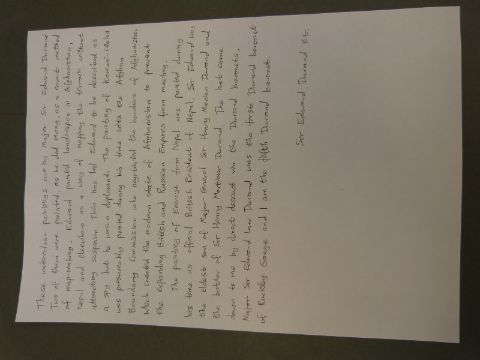 These watercolour paintings are by Major Sir Edward Durand
Two of them were painted, as he did many, as a covert method
of map-making. Edward painted landscapes in Afghanistan,
Nepal and elsewhere as a way of mapping the terrain without
attracting suspicion. This has led Edward to be described as
a spy but he was a diplomat. The painting of
was presumably painted during his time with the Afghan
Boundary Commission who negotiated the borders of Afghanistan
which created the modern state of Afghanistan to prevent
the expanding British and Russian Empires from meeting.
The painting of from Nepal was painted during
his time as official British Resident of Nepal. Sir Edward was
the eldest son of Major General Sir Henry Marion Durand and
the brother of Sir Henry Mortimer Durand. The
down to me by direct descent via the Durand baronets.
Major Sir Edward Law Durand was the first Durand baronet
of Ruckley Grange and I am the fifth Durand baronet
Sir Edward Durand Bt.